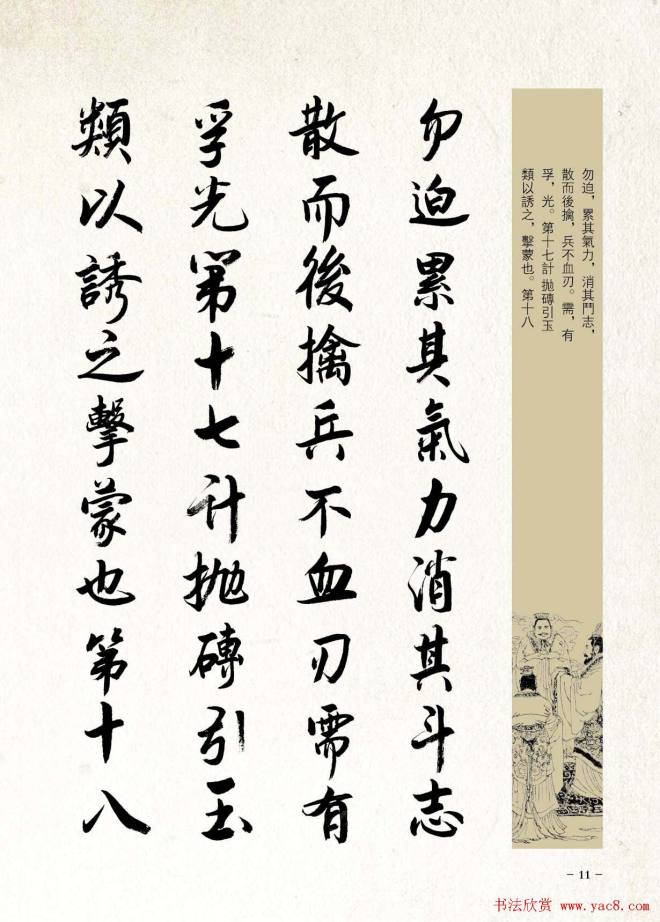 勿迫，累其氣力，消其鬥志，
散而後擒，兵不血刃。需，有
孚，光。第十七計 拋磚引玉
類以誘之，擊蒙也。第十八
勿迫累其氣力消其斗志
散而後擒兵不血刃需有
孚光第十七计拋磚引玉
類以誘之擊蒙也第十八
- 11 -
书法欣赏 www.yac8.com